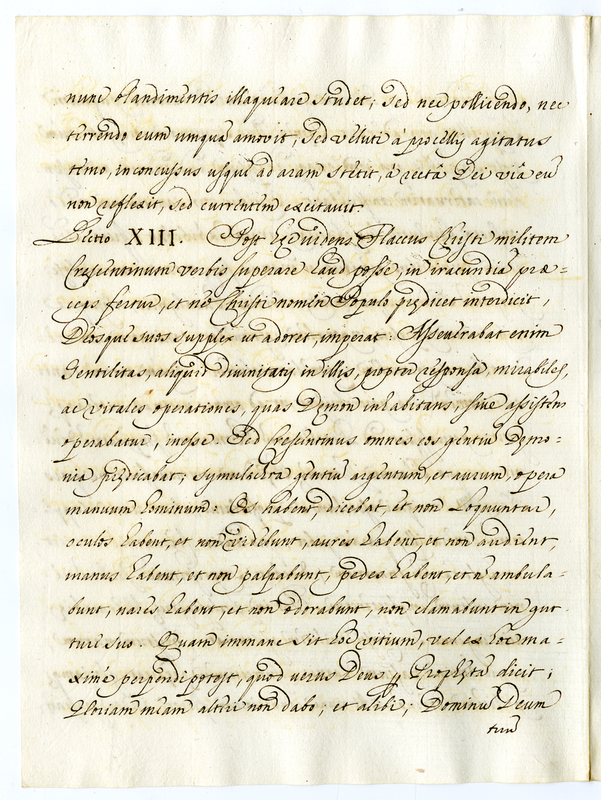 nunc blandimentis illaqueare studet; sed nec pollicendo, nec
terrendo eum umquã amovit, sed veluti à procellis agitatus
temo, inconcussus usque ad aram stetit, à rectâ Dei viâ eũ
non reflexit, sed currentem excitavit.
Lectio XIII. Post Flaccus Christi militem
Crescentinum verbis superare haud posse, in iracundiã præ=
ceps fertur, et nè Christi nomen Populo prędicet interdicit,
Deosque suos supplex ut adoret, imperat. Asseverabat enim
Gentilitas, aliquid divinitatis in illis, propter responsa, mirabiles,
ac vitales operationes, quas Dęmon inhabitans, sive assistens
operabatur, inesse. Sed Crescentinus omnes eos gentiũ Dęmo=
nia prędicabat; symulachra gentiũ argentum, et aurum, opera
manuum hominum: Os habent, dicebat, et non loquuntur,
oculos habent, et non videbunt, aures habent, et non audient,
manus habent, et non palpabunt, pedes habent, et ñ ambula=
bunt, nares habent, et non odorabunt, non clamabunt in gut=
ture suo. Quam immane sit hoc vitium, vel ex hoc ma=
ximè perpendi potest, quod verus Deus Prophętã dicit;
Gloriam meam alteri non dabo; et alibi; Dominũ Deum
tuũ